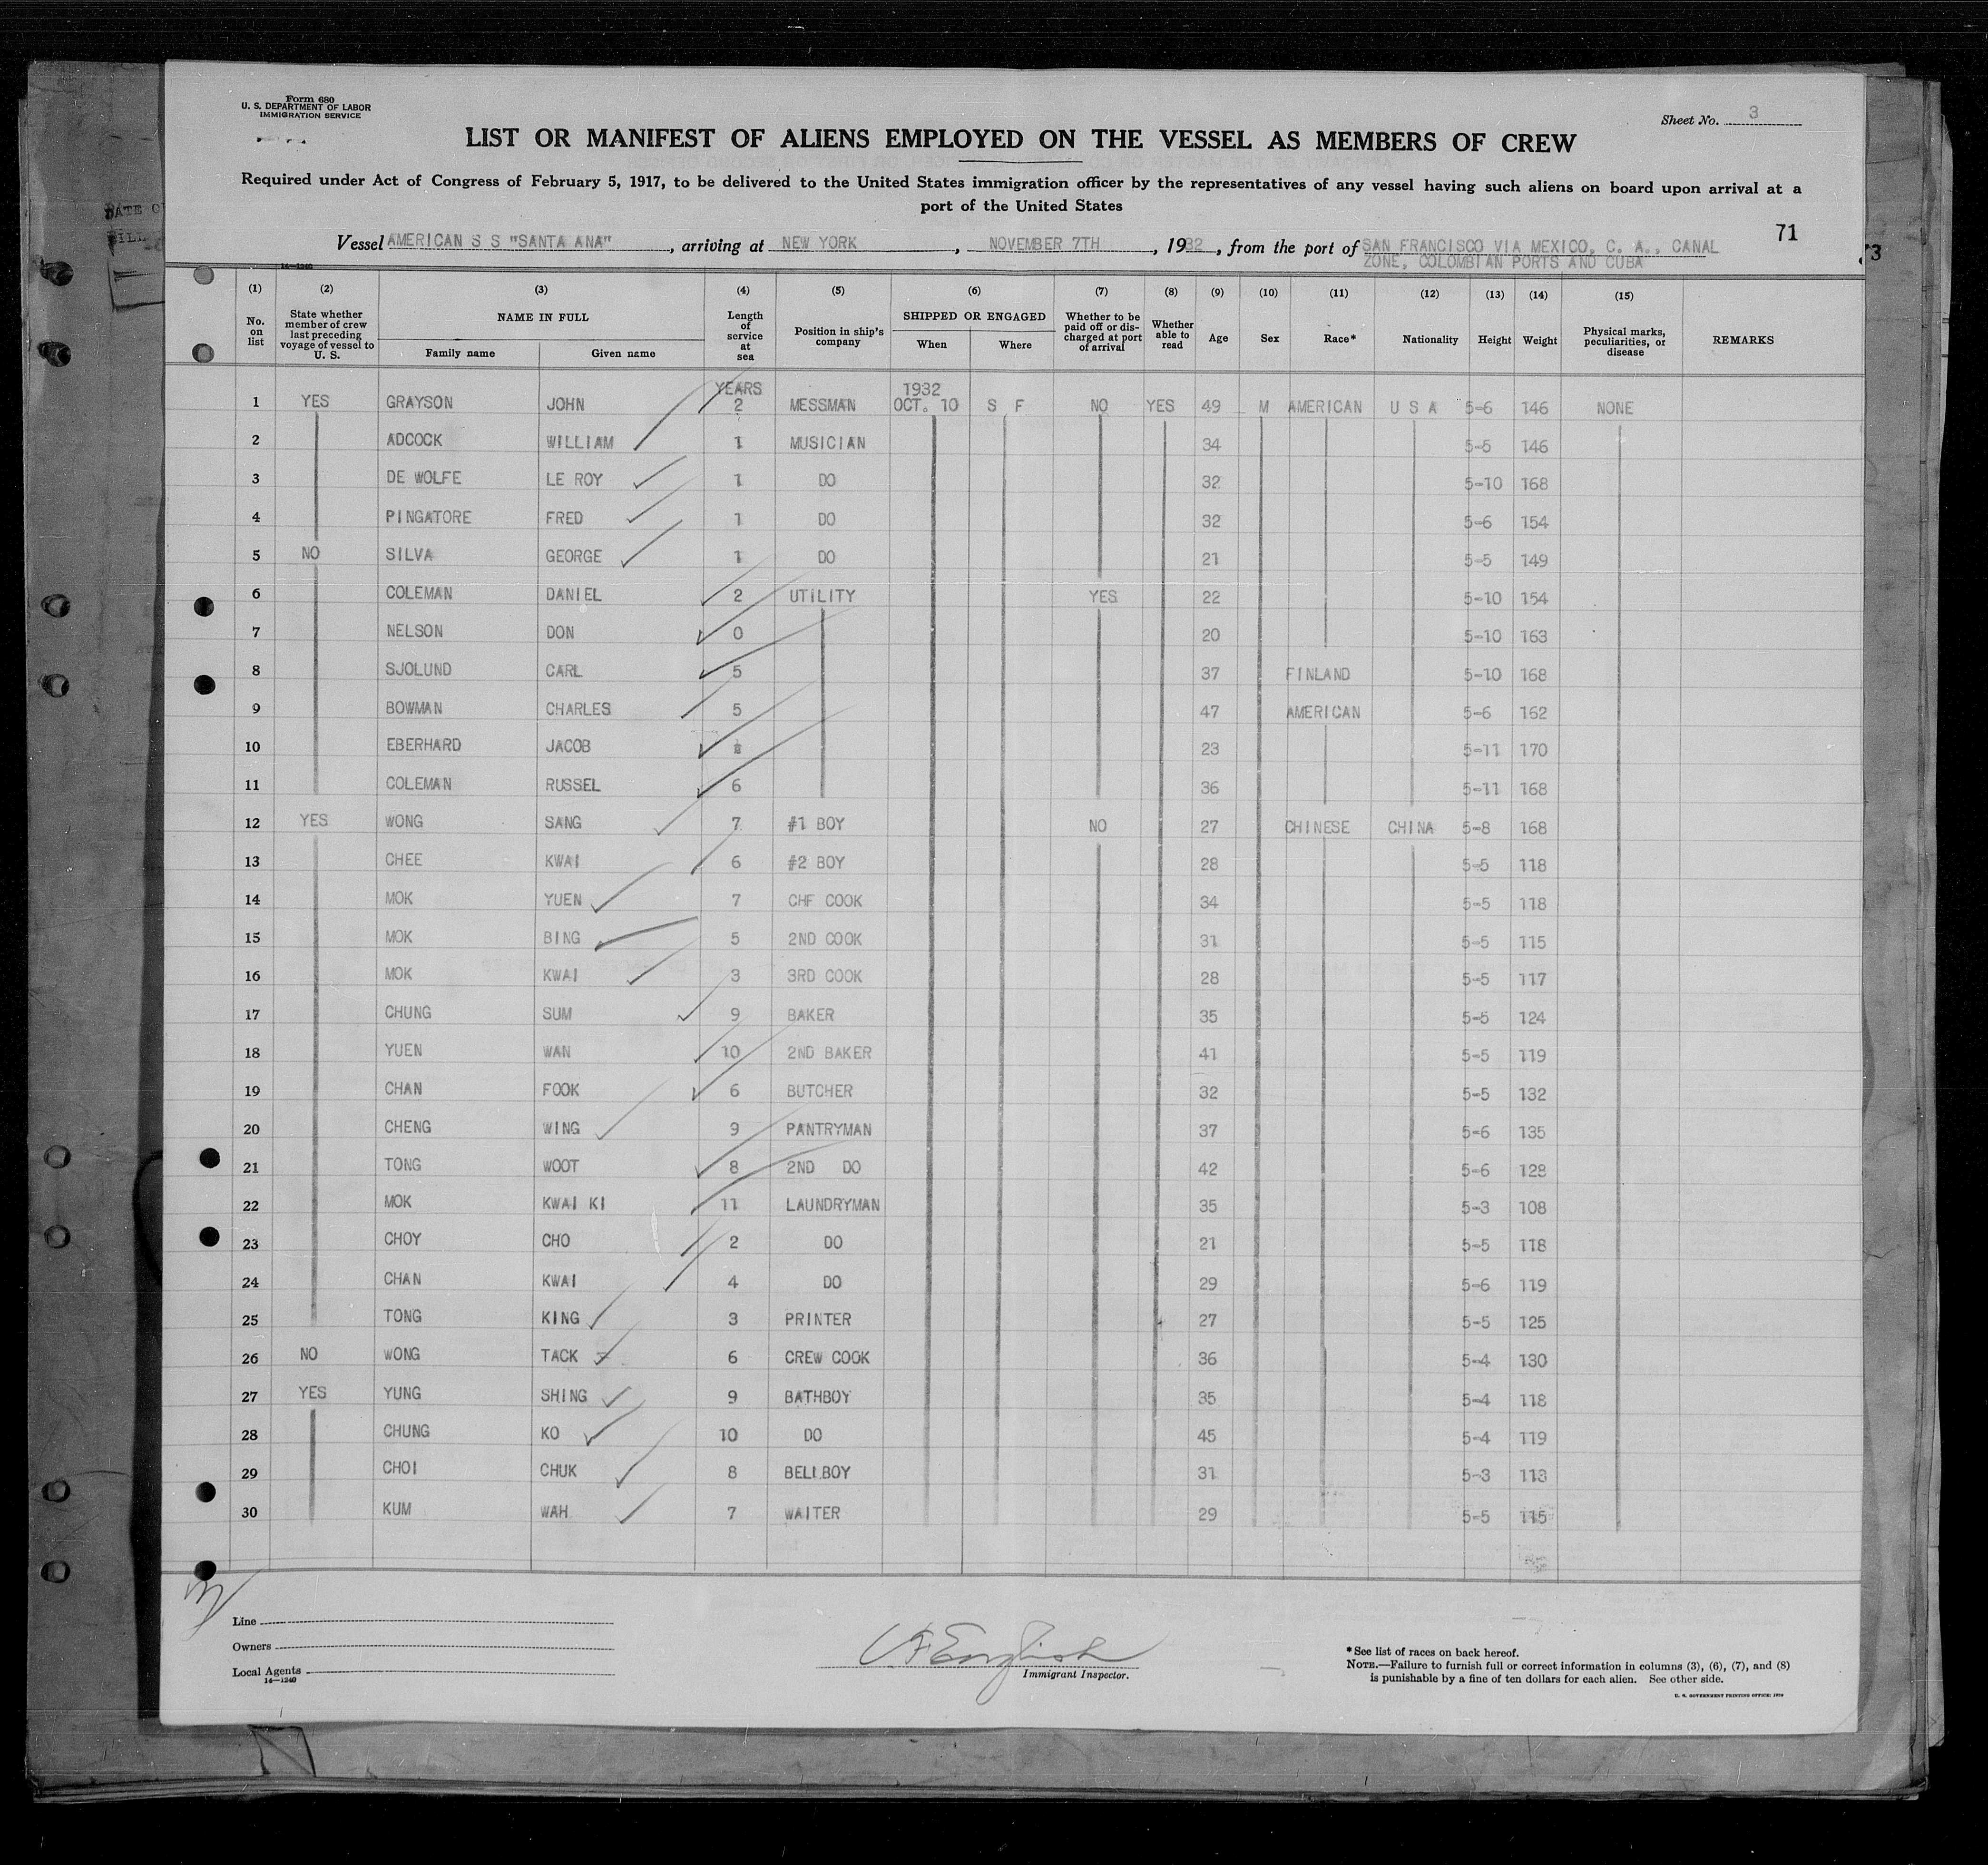 Form 680
U. S. DEPARTMENT OF LABOR
IMMIGRATION SERVICE
Sheet No. 3
LIST OR MANIFEST OF ALIENS EMPLOYED ON THE VESSEL AS MEMBERS OF CREW
Required under Act of Congress of February 5, 1917, to be delivered to the United States immigration officer by the representatives of any vessel having such aliens on board upon arrival at a
port of the United States
71
Vessel AMERICAN S S "SANTA ANA", arriving at NEW YORK, NOVEMBER 7TH, 1932, from the port of SAN FRANCISCO VIA MEXICO, C. A., CANAL
ZONE, COLOMBIAN PORTS AND CUBA
14—1240
(1) (2) (3) (4) (5) (6) (7) (8) (9) (10) (11) (12) (13) (14) (15)
No. on list
State whether member of crew last preceding voyage of vessel to U. S.
NAME IN FULL
Family name Given name
Length of service at sea
Position in ship's company
SHIPPED OR ENGAGED
When Where
Whether to be paid off or discharged at port of arrival
Whether able to read
Age
Sex
Race*
Nationality
Height
Weight
Physical marks, peculiarities, or disease
REMARKS
YEARS 1932
1 YES GRAYSON JOHN 2 MESSMAN OCT. 10 S F NO YES 49 M AMERICAN U S A 5-6 146 NONE
2 ADCOCK WILLIAM 1 MUSICIAN 34 5-5 146
3 DE WOLFE LE ROY 1 DO 32 5-10 168
4 PINGATORE FRED 1 DO 32 5-6 154
5 NO SILVA GEORGE 1 DO 21 5-5 149
6 COLEMAN DANIEL 2 UTILITY YES 22 5-10 154
7 NELSON DON 0 20 5-10 163
8 SJOLUND CARL 5 37 FINLAND 5-10 168
9 BOWMAN CHARLES 5 47 AMERICAN 5-6 162
10 EBERHARD JACOB 23 5-11 170
11 COLEMAN RUSSEL 6 36 5-11 168
12 YES WONG SANG 7 #1 BOY NO 27 CHINESE CHINA 5-8 168
13 CHEE KWAI 6 #2 BOY 28 5-5 118
14 MOK YUEN 7 CHF COOK 34 5-5 118
15 MOK BING 5 2ND COOK 31 5-5 115
16 MOK KWAI 3 3RD COOK 28 5-5 117
17 CHUNG SUM 9 BAKER 35 5-5 124
18 YUEN WAN 10 2ND BAKER 41 5-5 119
19 CHAN FOOK 6 BUTCHER 32 5-5 132
20 CHENG WING 9 PANTRYMAN 37 5-6 135
21 TONG WOOT 8 2ND DO 42 5-6 128
22 MOK KWAI KI 11 LAUNDRYMAN 35 5-3 108
23 CHOY CHO 2 DO 21 5-5 118
24 CHAN KWAI 4 DO 29 5-6 119
25 TONG KING 3 PRINTER 27 5-5 125
26 NO WONG TACK 6 CREW COOK 36 5-4 130
27 YES YUNG SHING 9 BATHBOY 35 5-4 118
28 CHUNG KO 10 DO 45 5-4 119
29 CHOI CHUK 8 BELLBOY 31 5-3 113
30 KUM WAH 7 WAITER 29 5-5 115
Line
Owners
Local Agents
14—1240
English
Immigrant Inspector.
*See list of races on back hereof.
NOTE.—Failure to furnish full or correct information in columns (3), (6), (7), and (8)
is punishable by a fine of ten dollars for each alien. See other side.